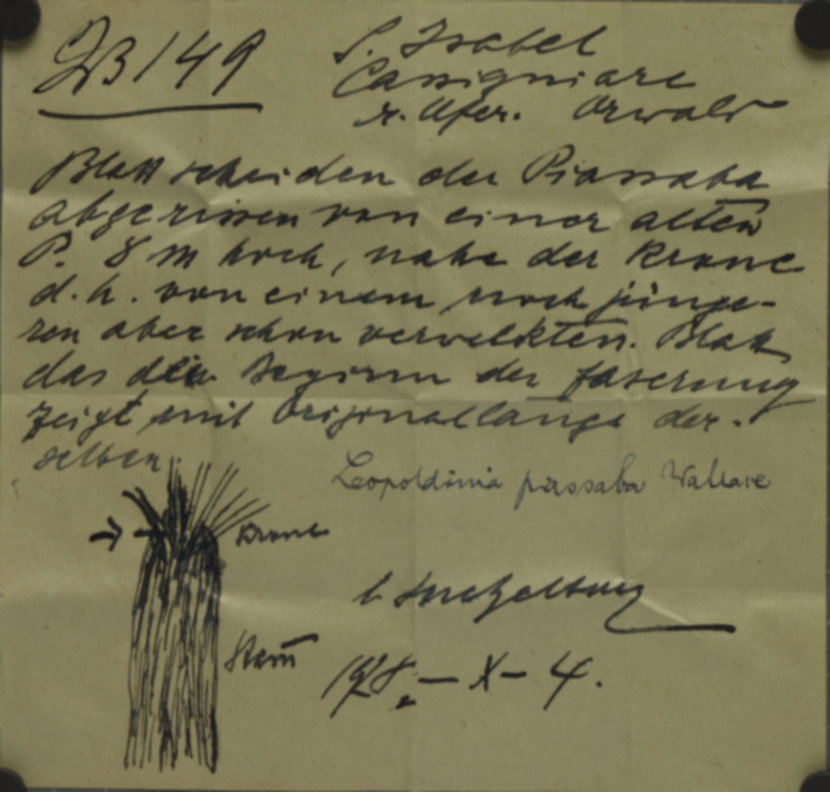 ZB 149
S. Isabel
Cassiquiare
r. Ufer. Orwald
Blattscheiden der Piassaba
abgerissen von einer alten
P. 8 m hoch, nahe der Krone
d.h. von einem noch jünge-
ren aber schon verwelkten. Blatt
das den Beginn der Faserung
zeigt mit Originallänge der-
selben.
Leopoldinia piassaba Wallace
Krone
Stam̄
1928 – X – 4.